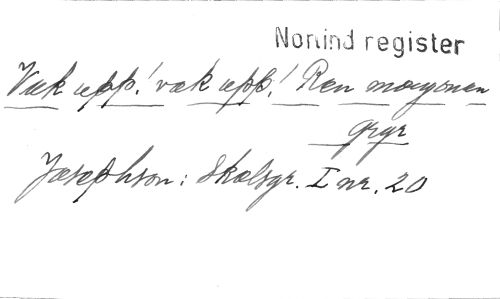 Norrlind register
Vak upp! vak upp! Ren morgonen
gryr
Josephson: Skolsgr. I nr. 20